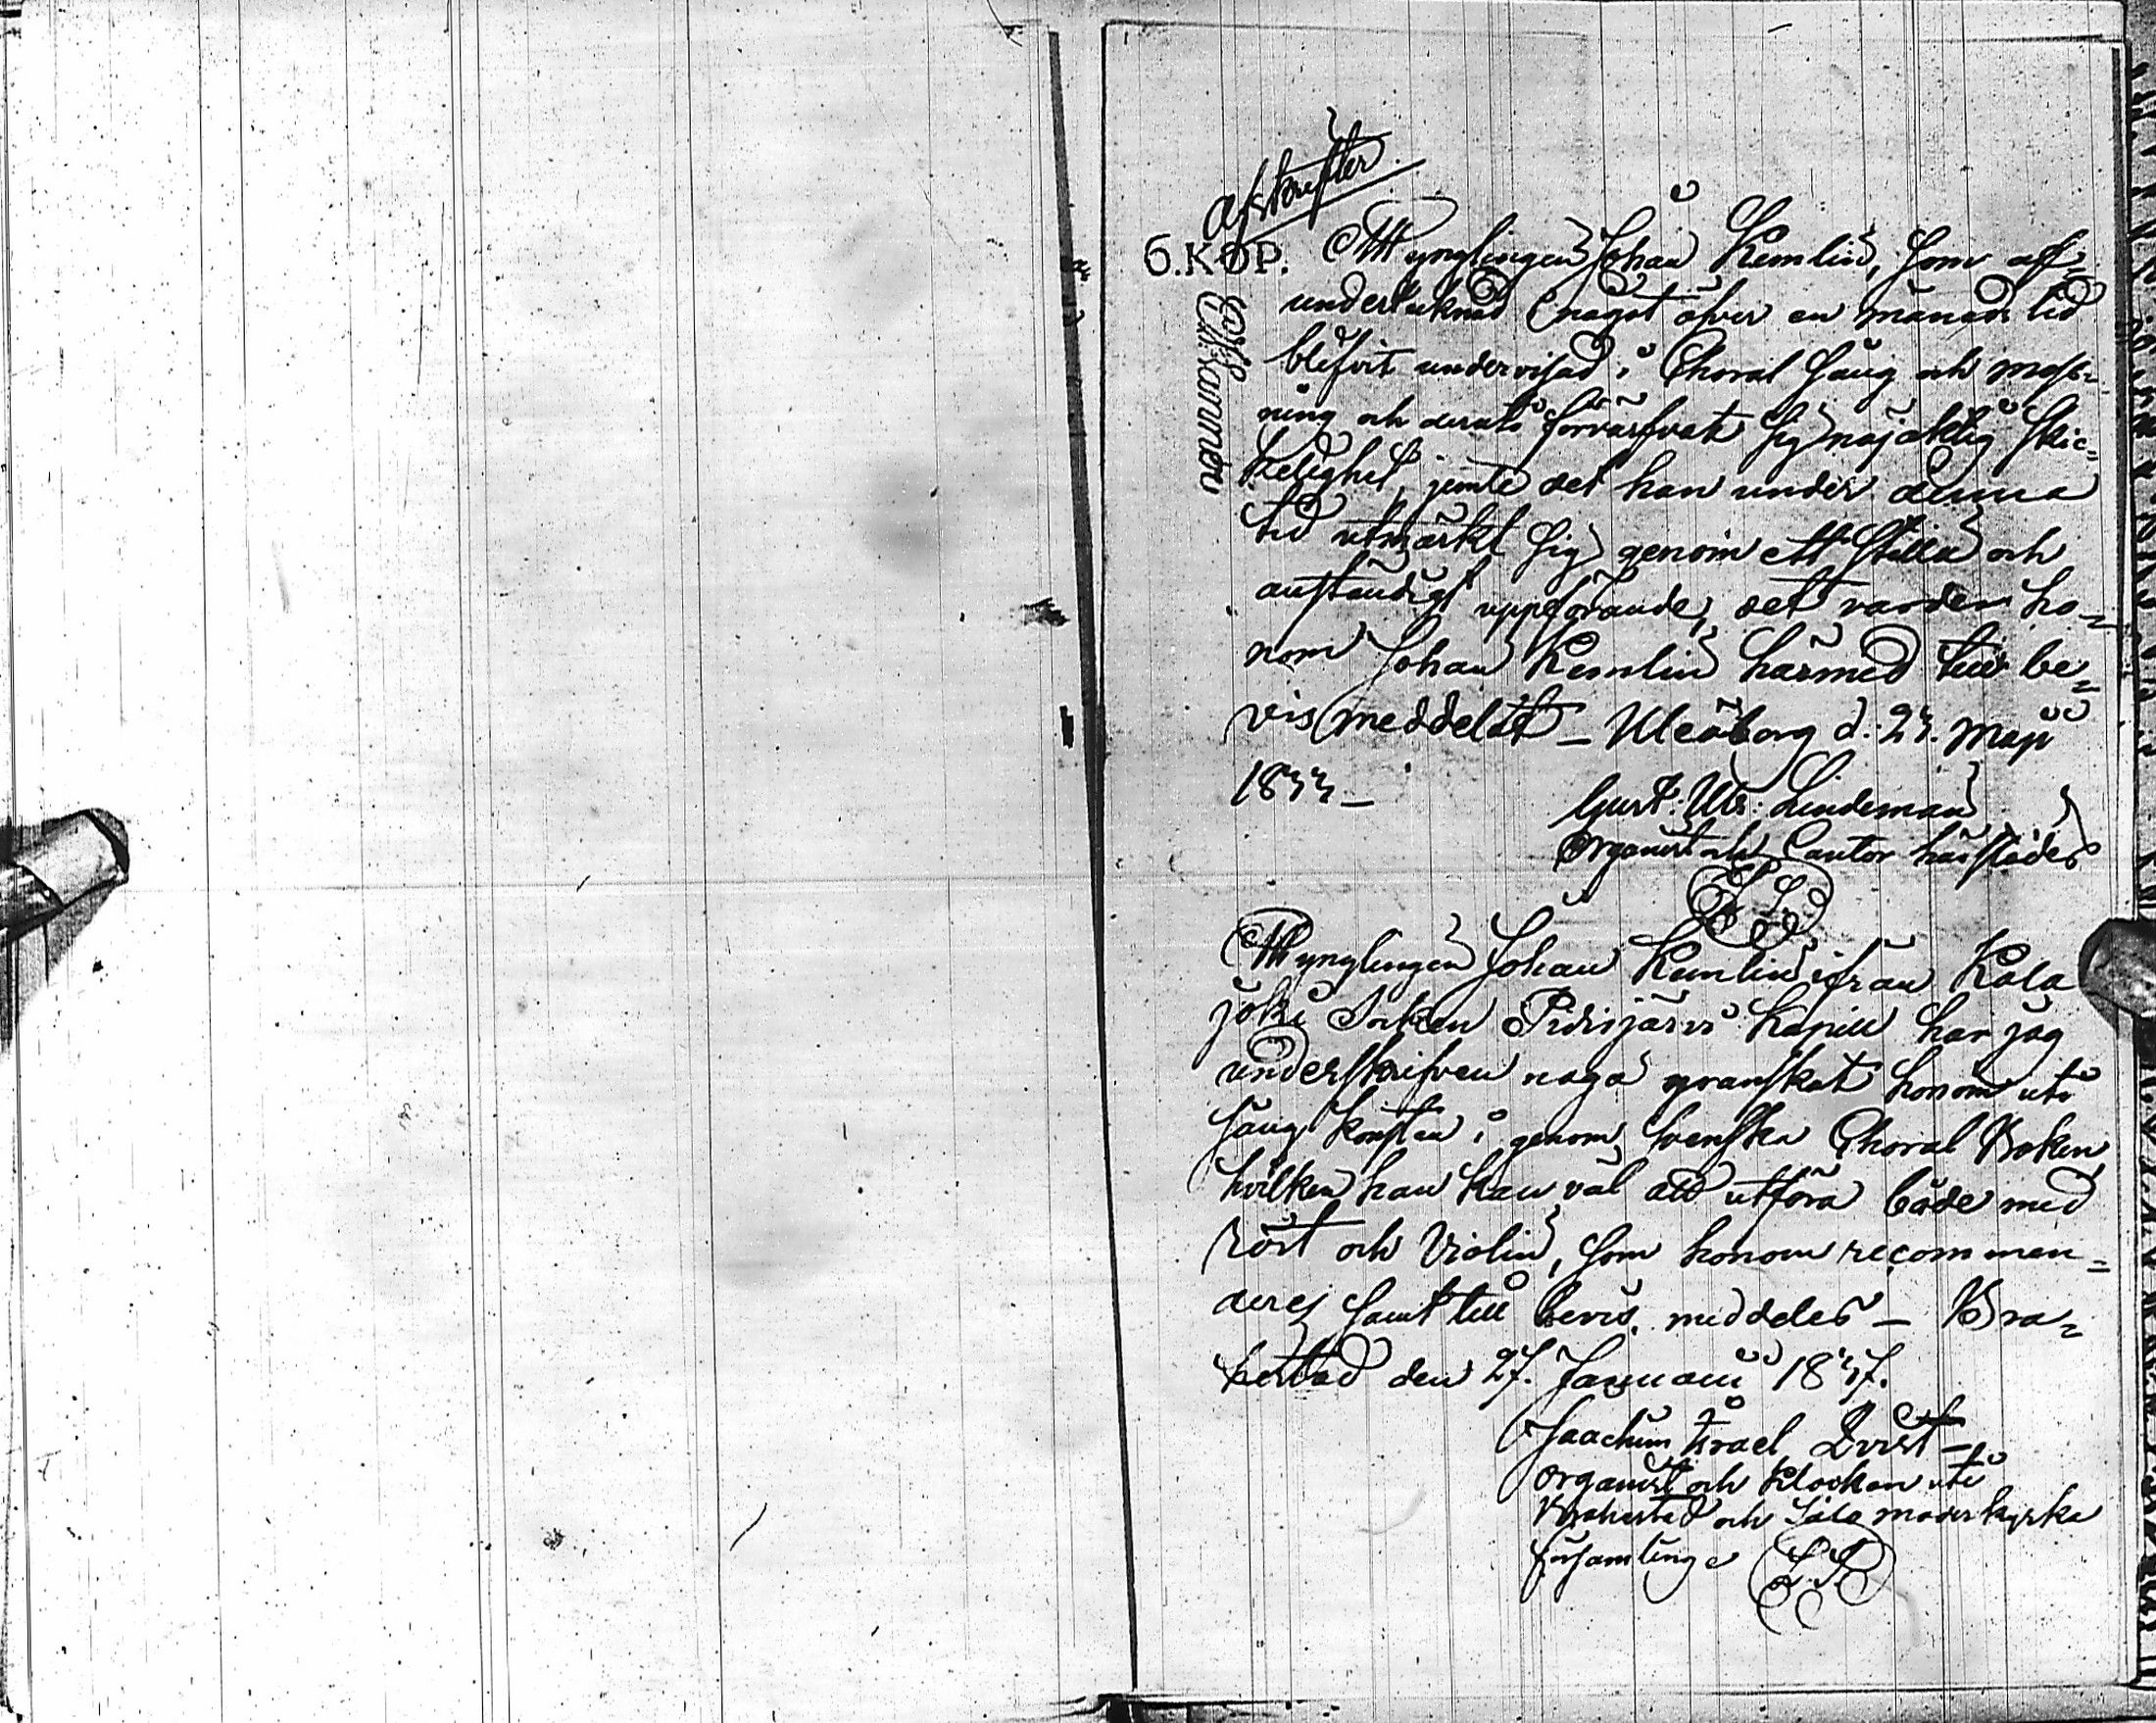 Afskrifter
6.KOP. Att ynglingen Johan Kemlin, som af
undertecknad något öfver en månads tid
blifvit undervisad i Choral sång och mess-
ning och deruti förvärfvat sig nöjaktig skic=
kelighet, jemte det han under denna
tid utmärkt sig genom ett stilla och
anständigt uppförande, det varder ho=
nom Johan Kemlin härmed till be=
vis meddelat – Uleåborg d: 24. Maji
1844 –
Gust: Ulr: Lindeman
Organist och Cantor härstädes
Att ynglingen Johan Kemlin ifrån Kala
joki Socken Pidisjärvi Kapell har jag
underskrifven noga granskat honom uti
Sång konsten i genom Svenska Choral Boken
hvilken han kan väl att utföra både med
röst och Violin, som honom recommen=
deres samt till bevis meddeles – Bra=
hestad den 27. Januarii 1847.
Joachim Israel Qvist –
Organist och Klockare uti
Brahestad och Salo moderkyrko
församlinge